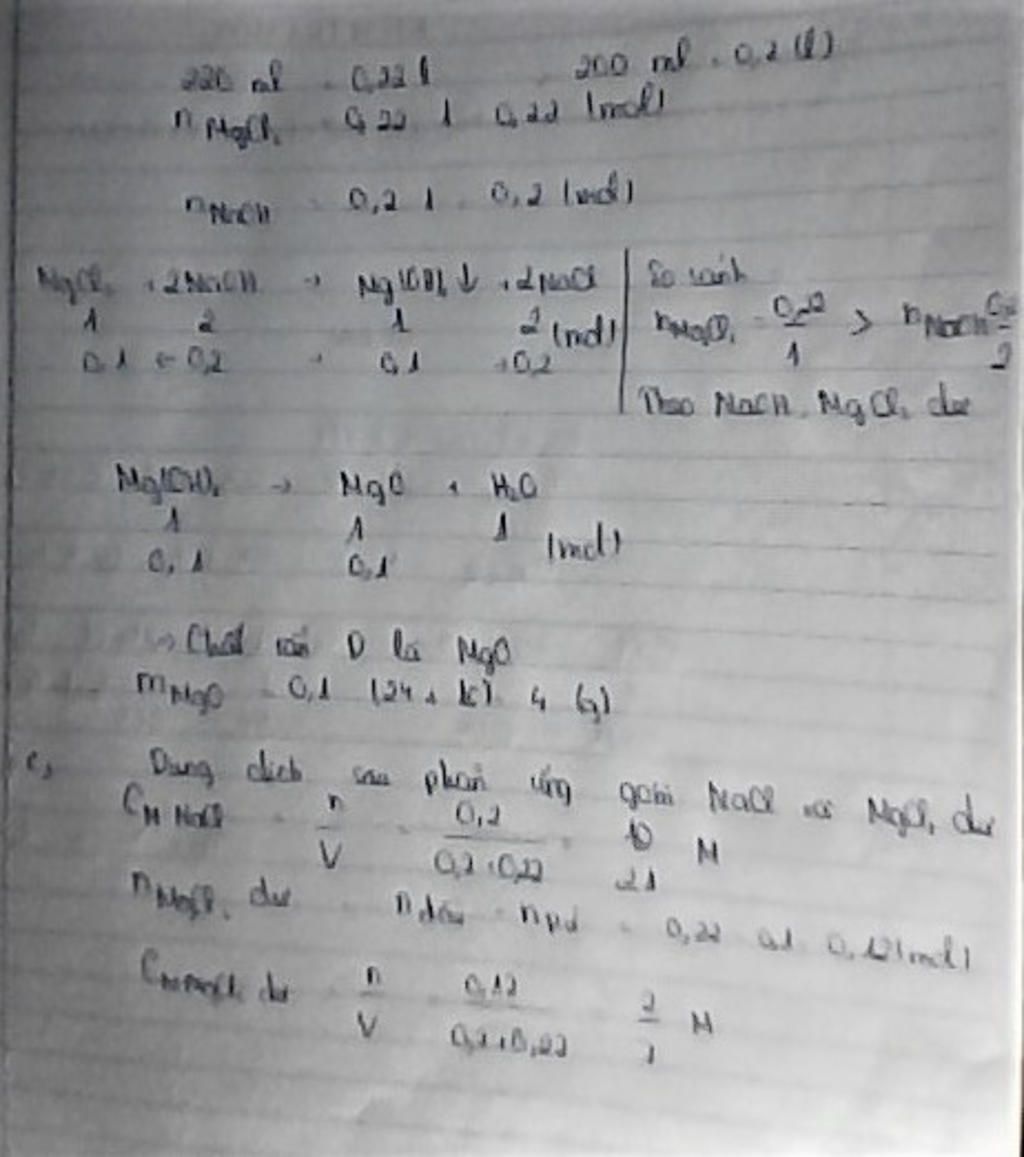 220 ml = 0,22 l 200 ml = 0,2 (l)
n MgCl₂ = 0,22 . 1 = 0,22 (mol)
n NaOH = 0,2 . 1 = 0,2 (mol)
MgCl₂ + 2NaOH → Mg(OH)₂ ↓ + 2NaCl
1 2 1 2 (mol)
0,1 ← 0,2 → 0,1 → 0,2
So sánh
n MgCl₂ = 0,22/1 > n NaOH 0,2/2
Theo NaOH, MgCl₂ dư
Mg(OH)₂ → MgO + H₂O
1 1 1 (mol)
0,1 0,1
→ Chất rắn D là MgO
m MgO = 0,1 . (24 + 16) = 4 (g)
c, Dung dịch sau phản ứng gồm NaCl và MgCl₂ dư
C M NaCl = n/V = 0,2/0,2+0,22 = 10/21 M
n MgCl₂ dư = n đầu - n pư = 0,22 - 0,1 = 0,12 (mol)
C M MgCl₂ dư = n/V = 0,12/0,2+0,22 = 2/7 M